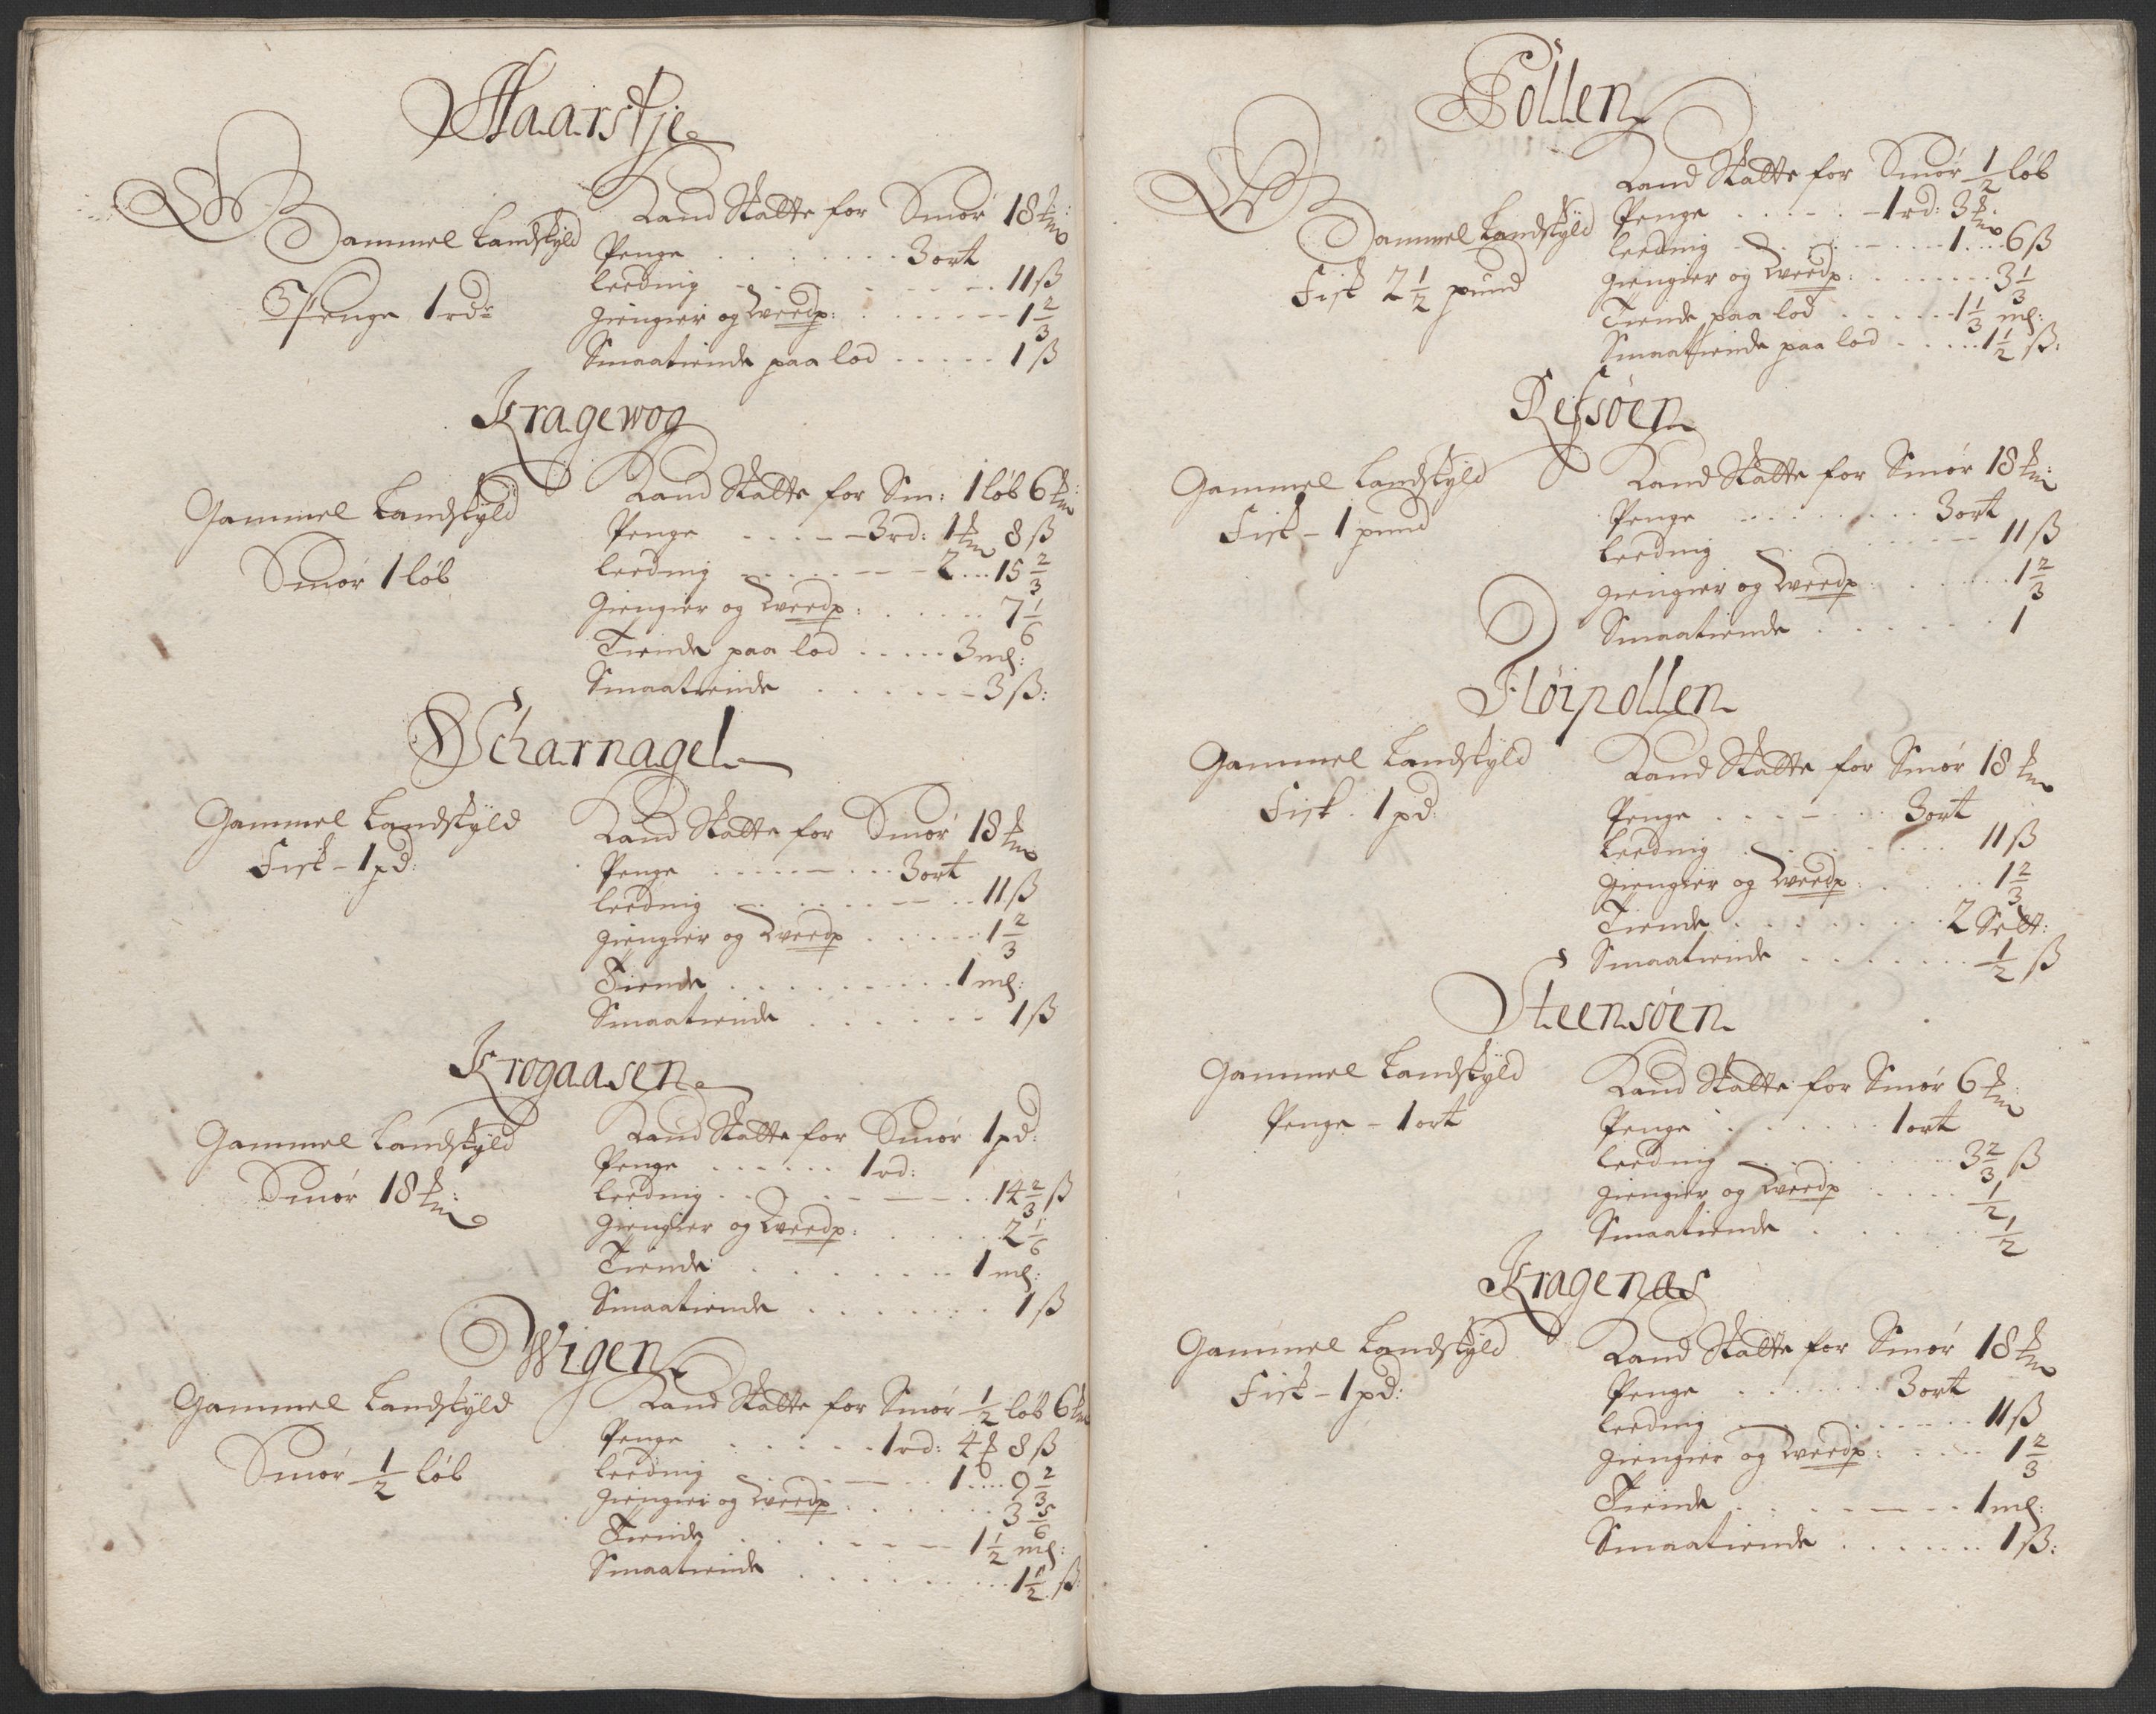 Haarstje
Gammel Landskÿld
Penge 1 rdr
Land Skatte for Smör 18 mk:
Penge . . . . . . . 3 ort
Leeding - . . . . . 11 ß
Giengier og Dverdp: . . . . 1 2/3
Smaatiende paa lod . . . . . 1 ß
Kragewog
Gammel Landskÿld
Smör 1 löb
Land Skatte for Sm: 1 löb 6 mk:
Penge . . . . - 3 rd: 1 mk 8 ß
Leeding . . . . . 2 . . . 15 2/3
Giengier og Dverdp: . . . . . 7 1/6
Tiende paa lod . . . . . 3 ml:
Smaatiende . . . . . . 3 ß:
Scharnagel
Gammel Landskÿld
Fisk - 1 pd:
Land Skatte for Smör 18 mk
Penge . . . . . . . . 3 ort
Leeding . . . . . . . 11 ß
Giengier og Dverdp . . . . . 1 2/3
Tiende . . . . . . . . . . 1 ml:
Smaatiende . . . . . . 1 ß
Krogaasen
Gammel Landskÿld
Smör 18 mk:
Land Skatte for Smör 1 pd:
Penge . . . . . . 1 rd:
Leeding . . . . . . . 14 2/3 ß
Giengier og Dverdp: . . . . . 2 1/6
Tiende . . . . . . . . 1 ml:
Smaatiende . . . . . . . 1 ß
Wigen
Gammel Landskÿld
Smör 1/2 löb
Land Skatte for Smör 1/2 löb 6 mk
Penge . . . . . . 1 rd: 4 ß 8 ß
Leeding . . . . . . 1 . . . . 9 2/3
Giengier og Dverdp . . . . . . . 3 5/6
Tiende . . . . . . . 1 1/2 ml:
Smaatiende . . . . . . . . . 1 1/2 ß:
Pollen
Gammel Landskÿld
Fisk 2 1/2 pund
Land Skatte for Smör 1/2 löb
Penge . . . . . - 1 rd: 3 mk
Leeding . . . . . . . . 1 . . . 6 ß
Giengier og Dverdp: . . . . . . . 3 1/3
Tiende paa lod . . . . . 1 1/3 ml:
Smaatiende paa lod . . . . . 1 1/2 ß:
Refsöen
Gammel Landskÿld
Fisk - 1 pund
Land Skatte for Smör 18 mk:
Penge . . . . . . . . 3 ort
Leeding . . . . . . . 11 ß
Giengier og Dverdp . . . . . . 1 2/3
Smaatiende . . . . . . . 1
Flöipollen
Gammel Landskyld
Fisk . 1 pd:
Land Skatte for Smör 18 mk
Penge . . . . . . . 3 ort
Leeding . . . . . . . . 11 ß
Giengier og Dverdp . . . . . . 1 2/3
Tiende . . . . . . . . 2 Sett:
Smaatiende . . . . . . . . 1/2 ß
Steensöen
Gammel Landskÿld
Penge - 1 ort
Land Skatte for Smör 6 mk
Penge . . . . . . . . 1 ort
Leeding . . . . . . . . 3 2/3 ß
Giengier og Dverdp . . . . 1/2
Smaatiende . . . . . . 1/2
Kragenæs
Gammel Landskyld
Fisk - 1 pd:
Land Skatte for Smör 18 mk
Penge . . . . . . . 3 ort
Leeding . . . . . . . . 11 ß
Giengier og Dverdp: . . . . . 1 2/3
Tiende . . . . . . . . . 1 ml:
Smaatiende . . . . . . . 1 ß: